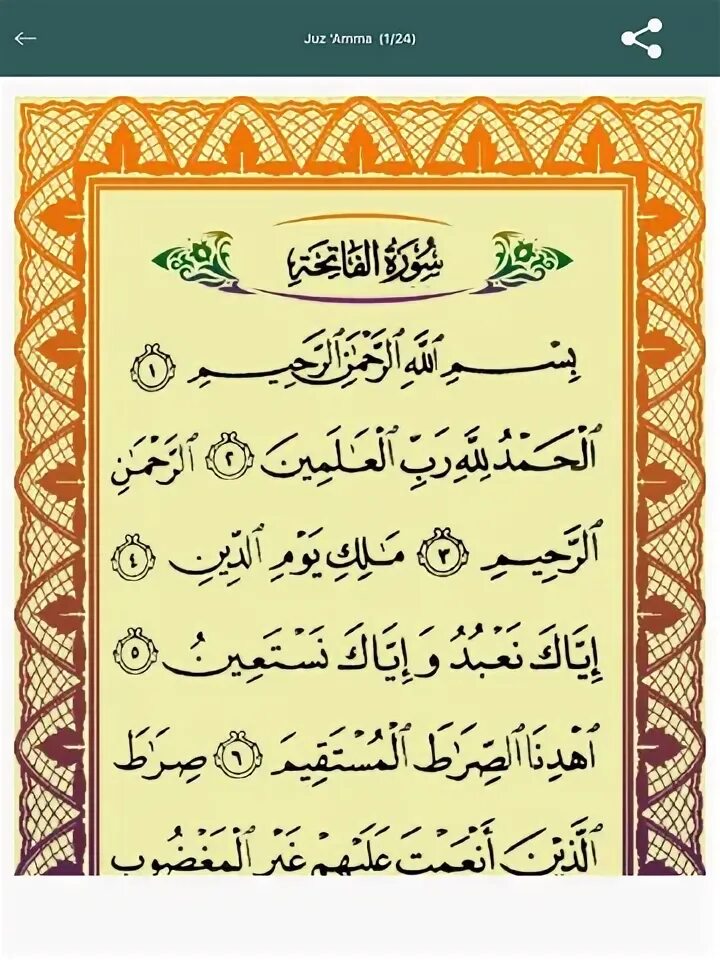 Juz 'Amma (1/24)
سُورَةُ الفَاتِحَةِ
بِسْمِ ٱللَّهِ ٱلرَّحْمَٰنِ ٱلرَّحِيمِ ١
ٱلْحَمْدُ لِلَّهِ رَبِّ ٱلْعَٰلَمِينَ ٢ ٱلرَّحْمَٰنِ
ٱلرَّحِيمِ ٣ مَٰلِكِ يَوْمِ ٱلدِّينِ ٤
إِيَّاكَ نَعْبُدُ وَإِيَّاكَ نَسْتَعِينُ ٥
ٱهْدِنَا ٱلصِّرَٰطَ ٱلْمُسْتَقِيمَ ٦ صِرَٰطَ
ٱلَّذِينَ أَنْعَمْتَ عَلَيْهِمْ غَيْرِ ٱلْمَغْضُوبِ